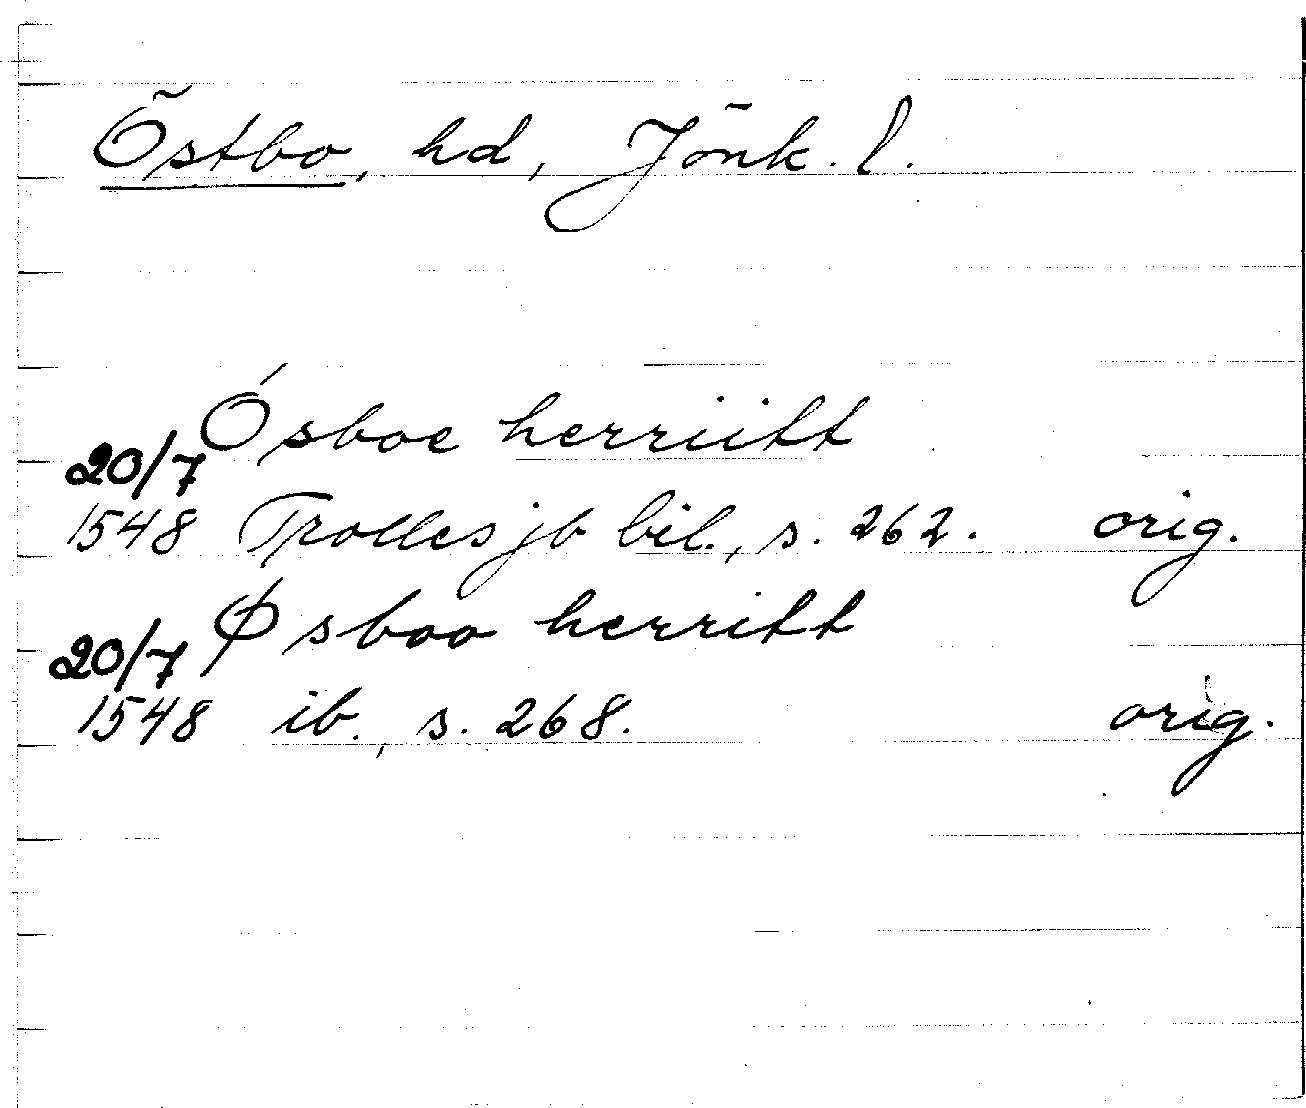 Östbo, hd, Jönk. l.
Ósboe herriitt
20/7
1548 Trolles jb bil., s. 262. orig.
Øsboo herritt
20/7
1548 ib., s. 268. orig.